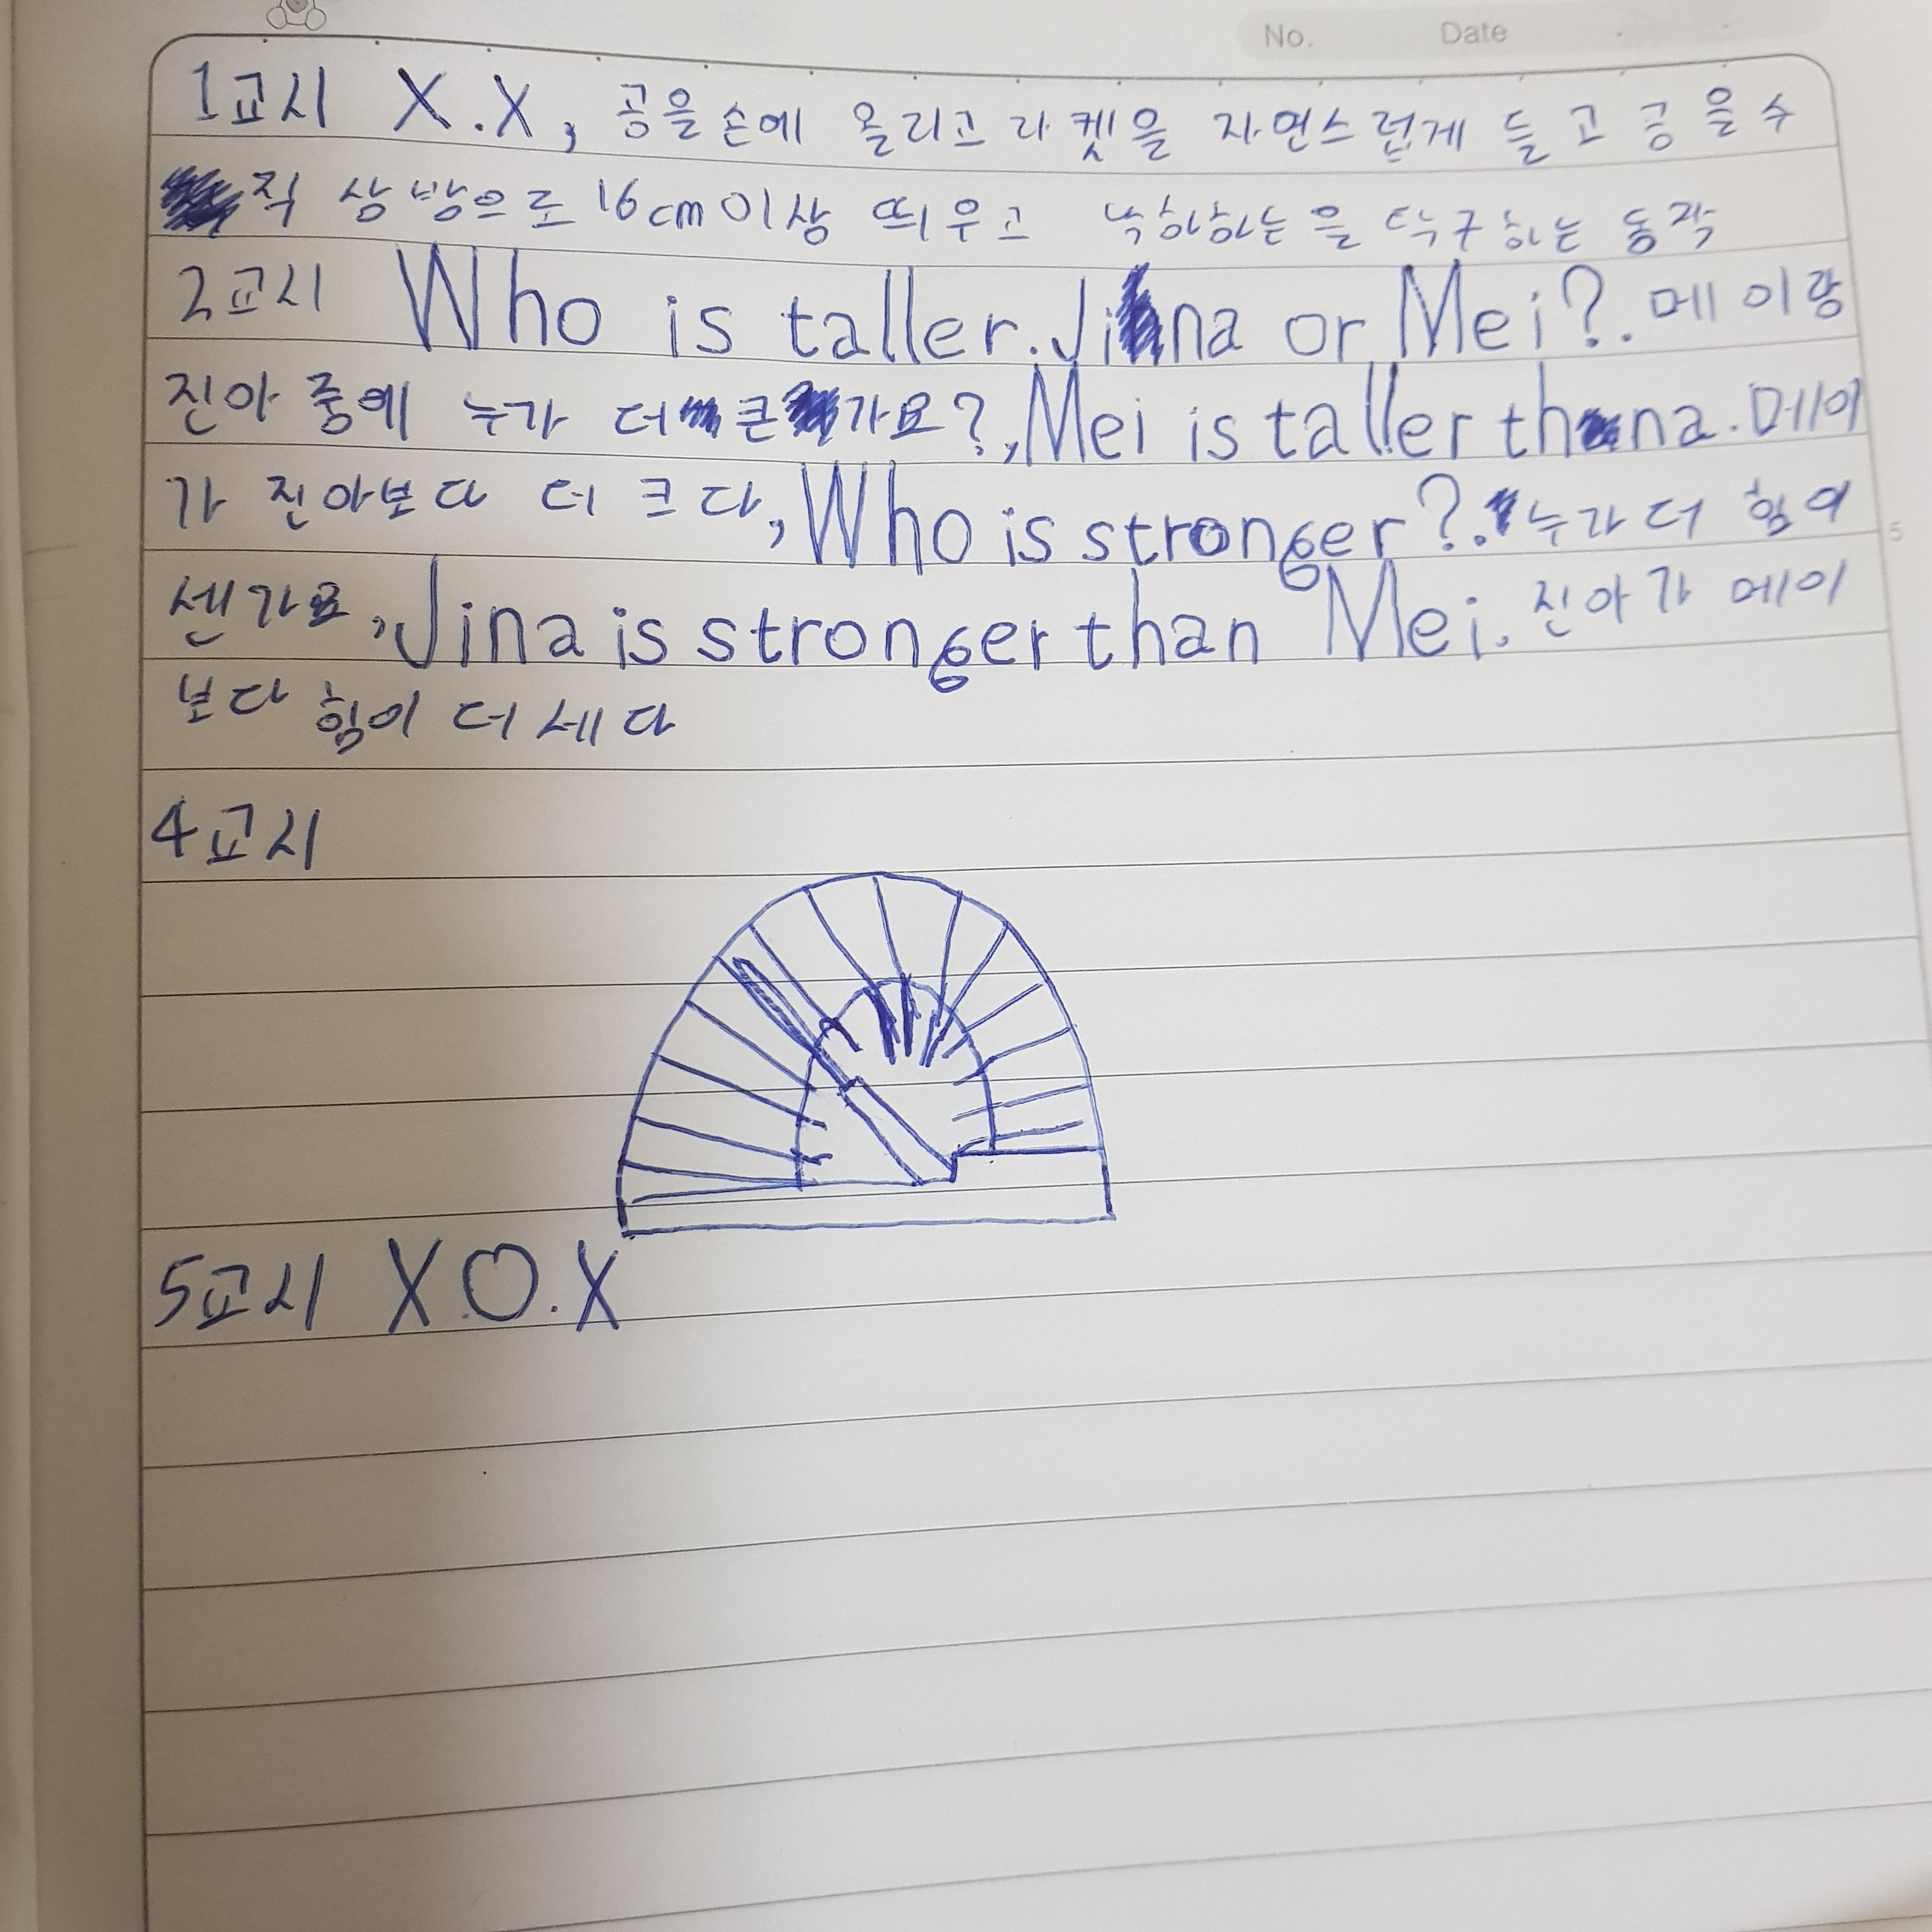 No. Date
1교시 X.X, 공을 손에 올리고 라켓을 자연스럽게 들고 공을 수
직 상방으로 16cm이상 띄우고 낙하하는 을 탁구하는 동작
2교시 Who is taller. Jina or Mei?. 메이랑
진아 중에 누가 더 큰가요?, Mei is taller thana. 메이
가 진아보다 더 크다, Who is stronger?. 누가 더 힘이
5
센가요, Jina is stronger than Mei. 진아가 메이
보다 힘이 더 세다
4교시
5교시 X.O.X